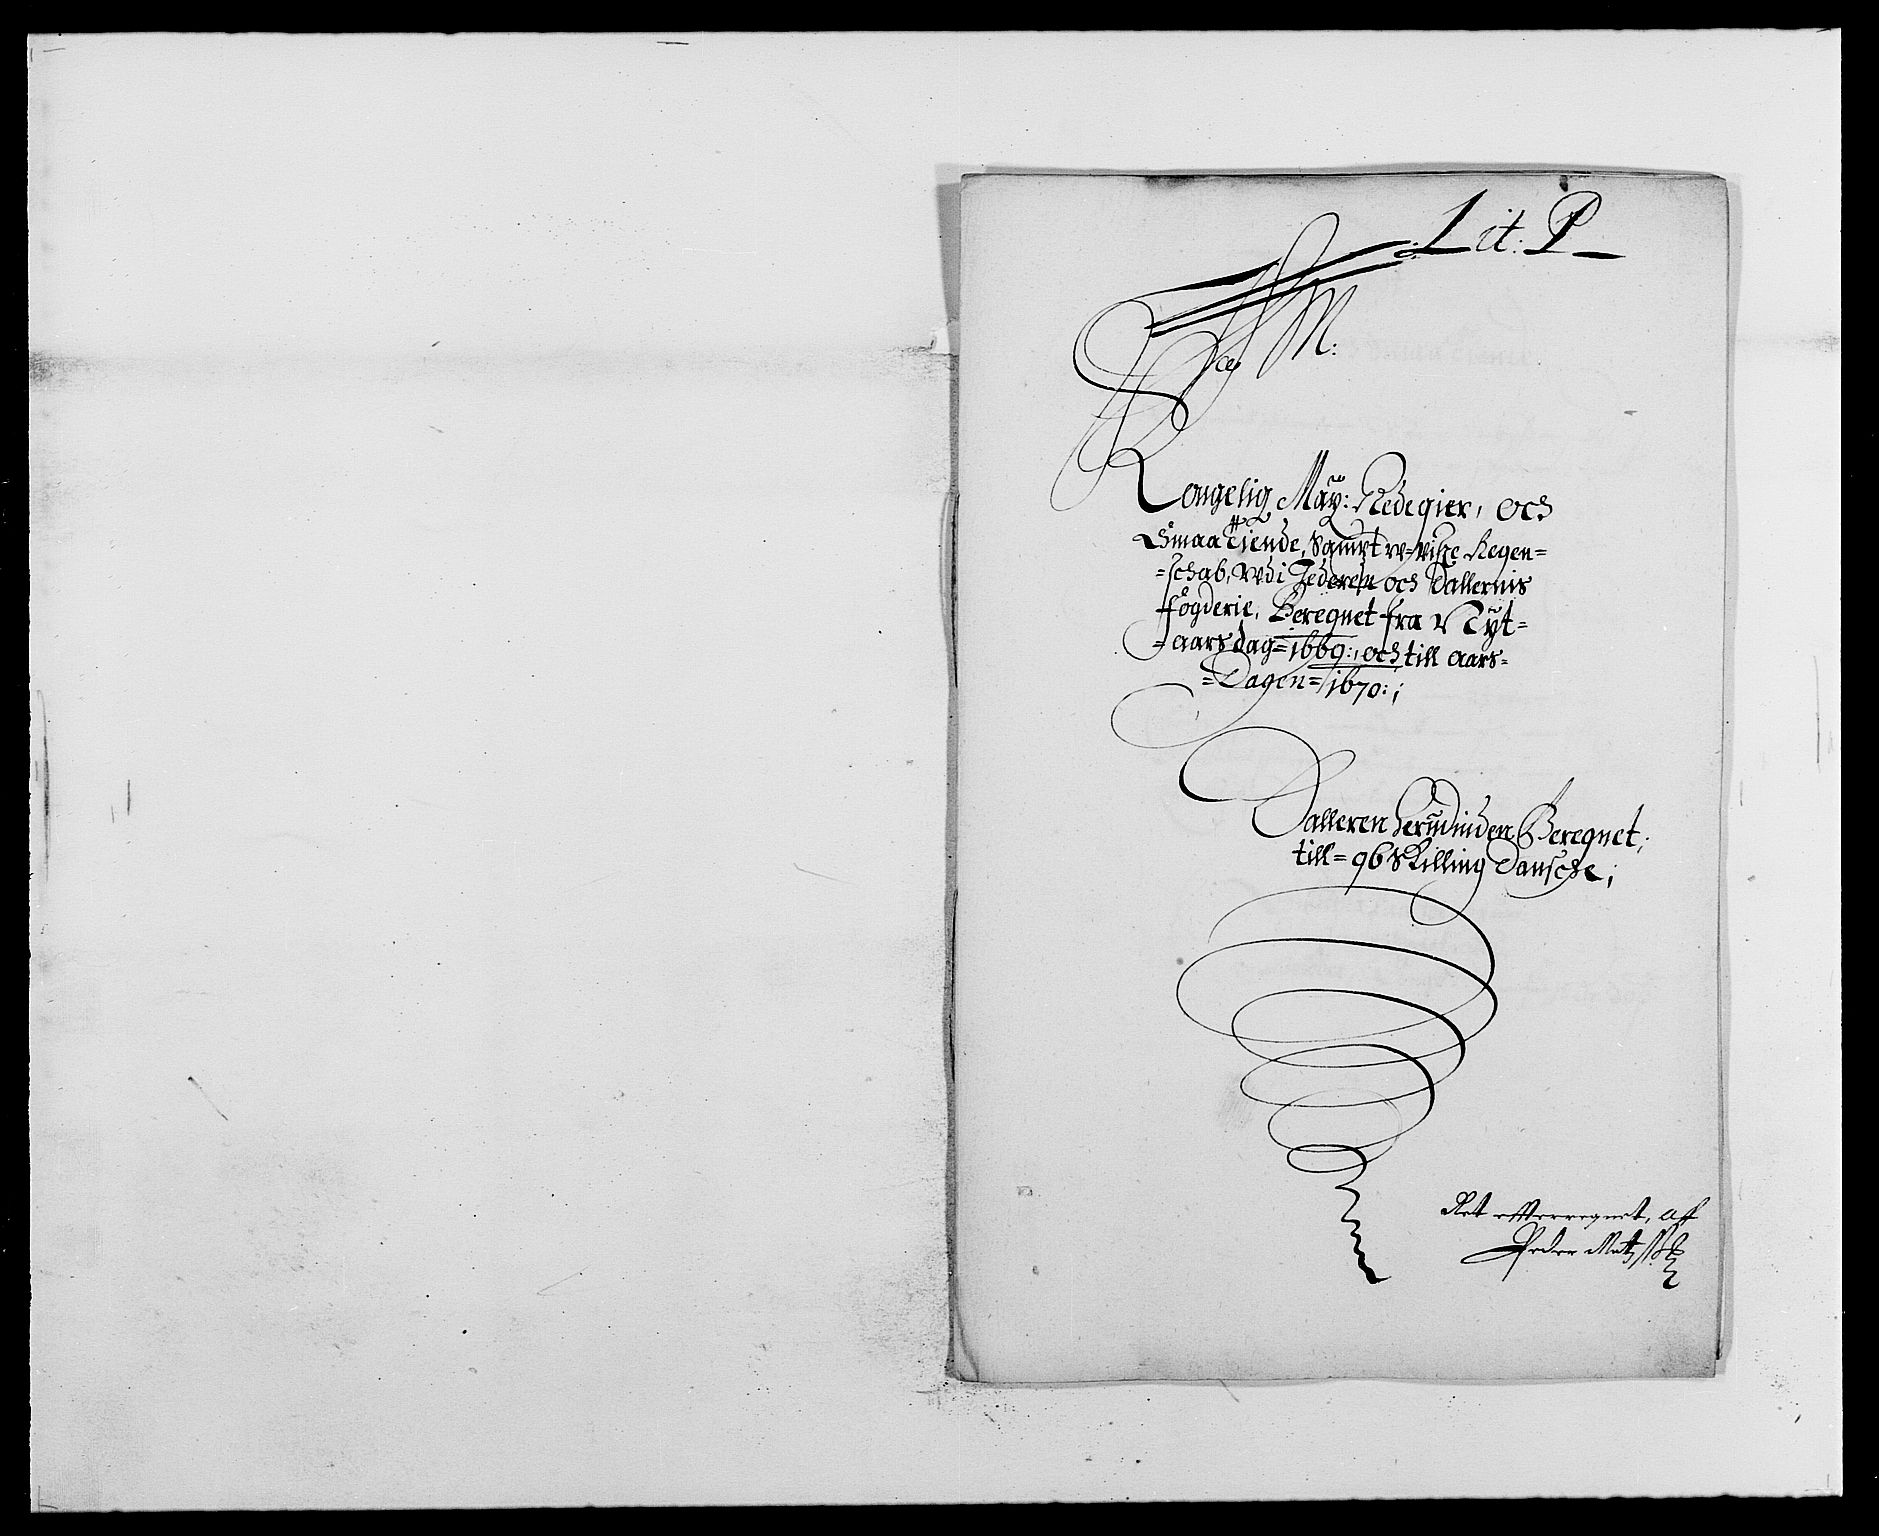 Lit: P
M:
Kongelig May: Ledegier, och
Smaa Tiende, Sampt w-wisse Regen=
=schab, wdi Jederen och Dallernis
fogderie, Beregnet fra Nyt=
=aarsdag= 1669:, och till aars=
=Dagen= 1670:;
Dalleren herudinden Beregnet;
till= 96 Skilling Dansche;
Ret efterregnet, aff
Peder Matz